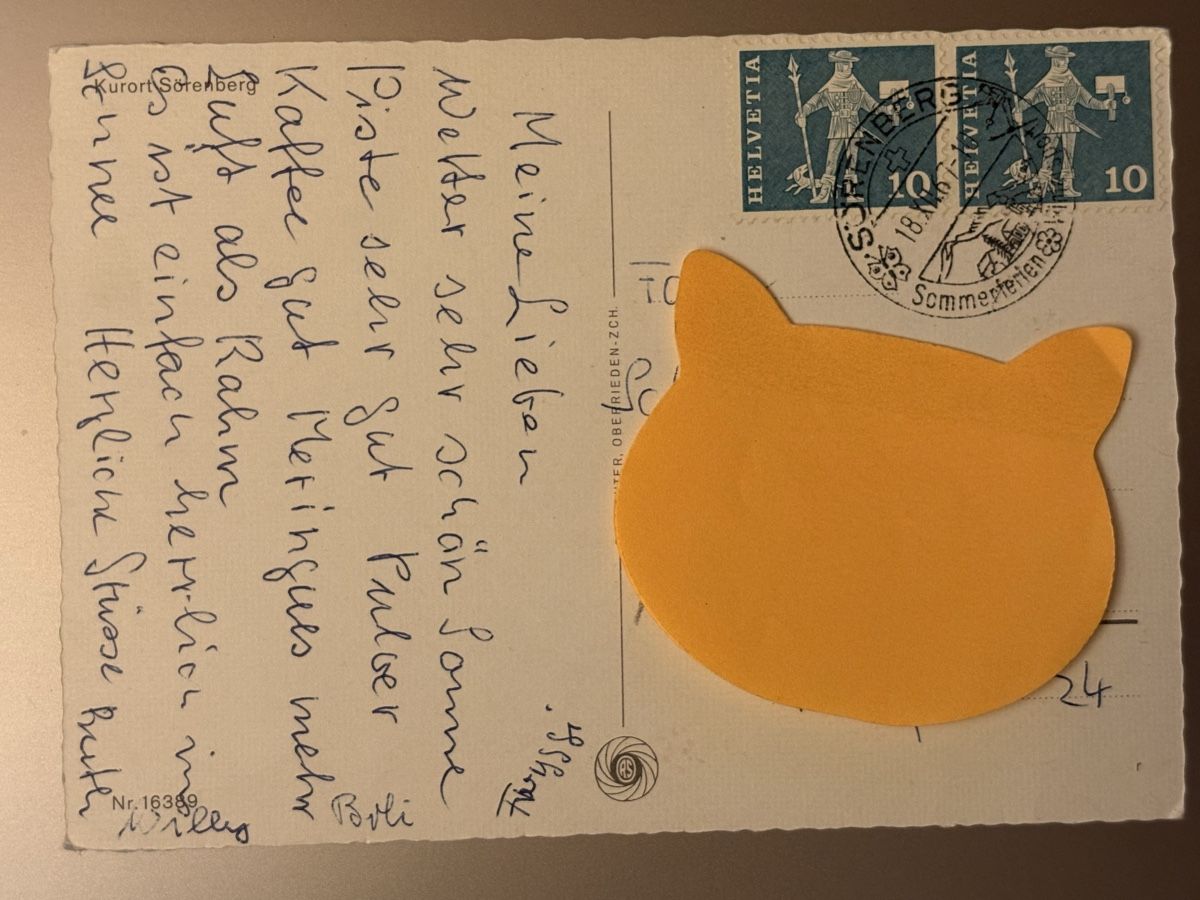 Kurort Sörenberg
Meine Lieben
Wetter sehr schön Sonne
Piste sehr gut Pulver
Kaffee gut Meringues mehr
Luft als Rahm
Es ist einfach herrlich in
Sonne Herzliche Grüsse
Nr. 16389
HELVETIA
10
HELVETIA
10
SÖRENBERG
18.XII.67
Sommerferien
OBERRIEDEN-ZCH.
24